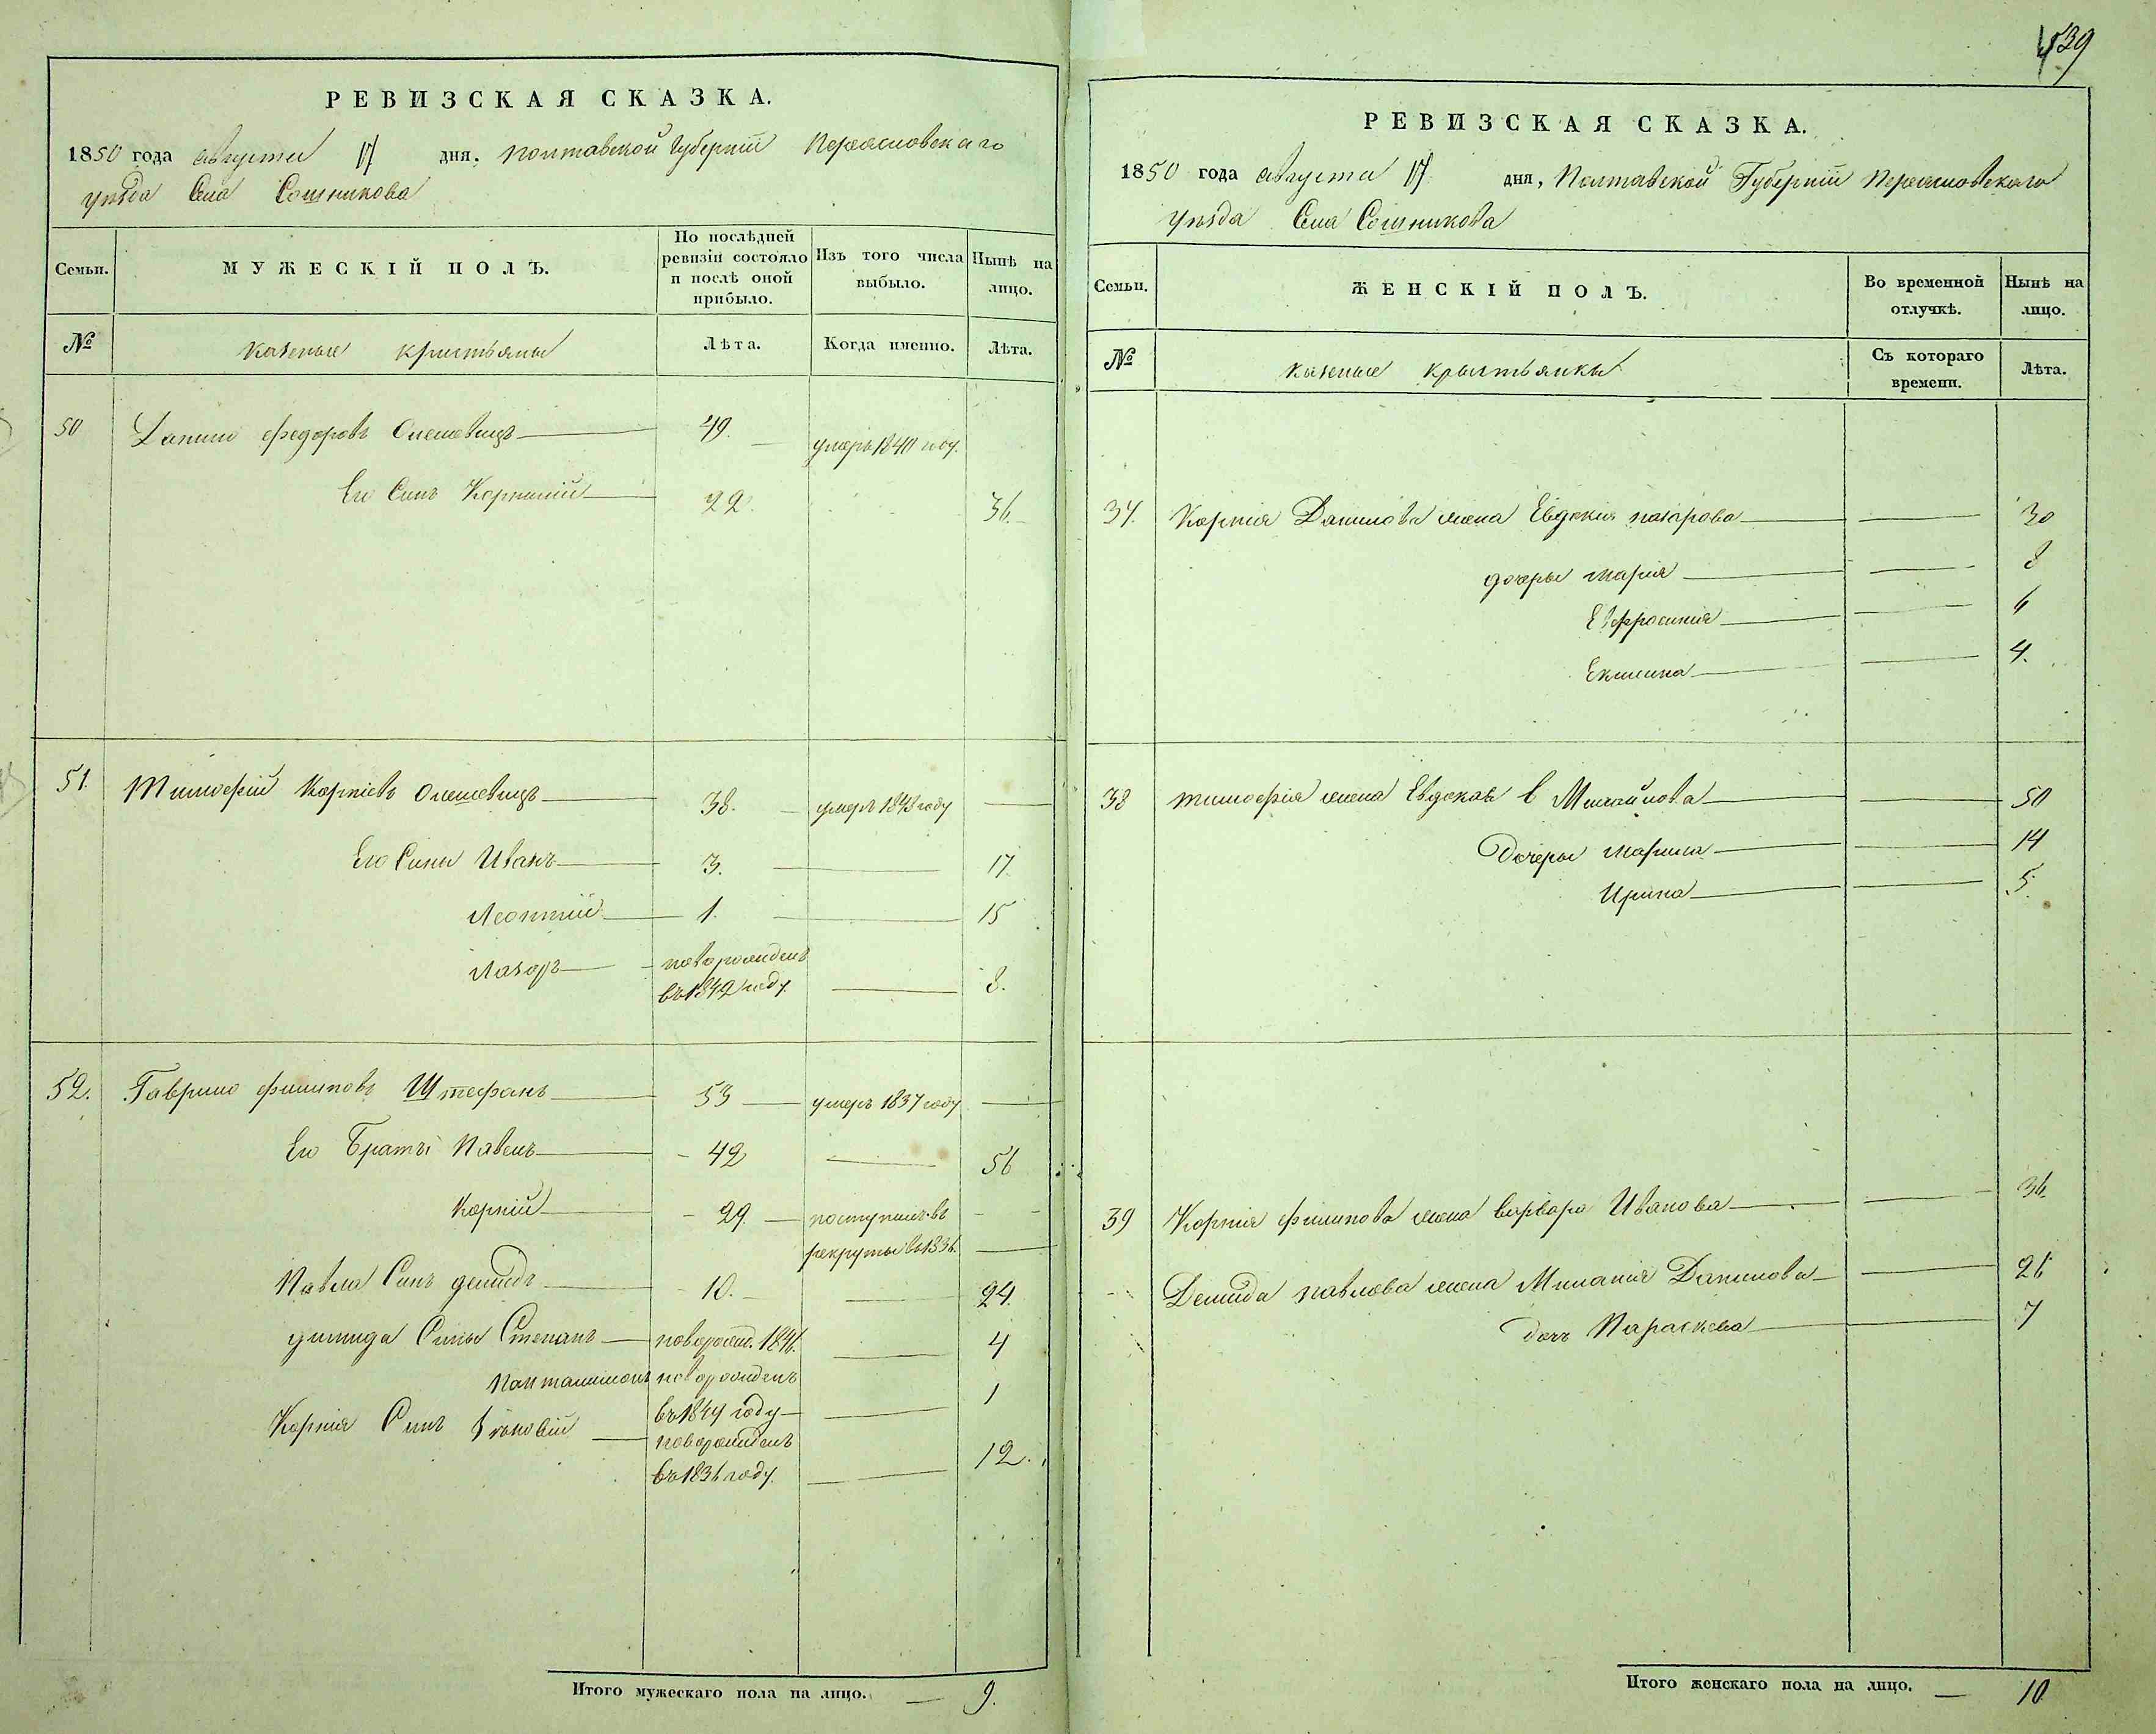 439
РЕВИЗСКАЯ СКАЗКА.
1850 года августа 17 дня, Полтавской Губерніи Переясловскаго
уѣзда Села Сошникова
Семьи. МУЖЕСКІЙ ПОЛЪ. По послѣдней ревизіи состояло и послѣ оной прибыло. Изъ того числа выбыло. Нынѣ на лицо.
№ казеные кристьяны Лѣта. Когда именно. Лѣта.
50 Данило федоровъ 49. умеръ 1840 году.
Его Синъ Корнилій 22. 36.
51. Тимофій Корніевъ 38. умеръ 1848 году
Его Сины Иванъ 3. 17.
Леонтій 1. 15
Лазоръ новорожденъ
въ 1842 году. 8.
52. Гаврило филиповъ Штефанъ 53 умеръ 1837 году
Его Братъі Павелъ 42 56
Корній 29. поступилъ въ
рекруты въ 1836.
Павла Синъ демидъ 10. 24.
димида Сины Степанъ новорожд. 1846. 4
Панталимонъ новорожденъ
въ 1849 году 1
Корнія Синъ новорожденъ
въ 1836 году. 12.
Итого мужескаго пола на лицо. 9.
РЕВИЗСКАЯ СКАЗКА.
1850 года августа 17 дня, Полтавской Губерніи Переясловскаго
уѣзда Села Сошникова
Семьи. ЖЕНСКІЙ ПОЛЪ. Во временной отлучкѣ. Нынѣ на лицо.
№ казеные крыстьянкы Съ котораго времени. Лѣта.
37. Корнія Данилова жена Евдокія назарова 30
дочеры марія 8
Евфросинія 6
Екилина 4.
38 тимофія жена Михайлова 50
Дочеры марина 14
Ирина 5.
39 Корнія филипова жена варвара Иванова 36.
Демида павлова жена Миланія Данилова 26
дочъ Параскева 7
Итого женскаго пола на лицо. 10